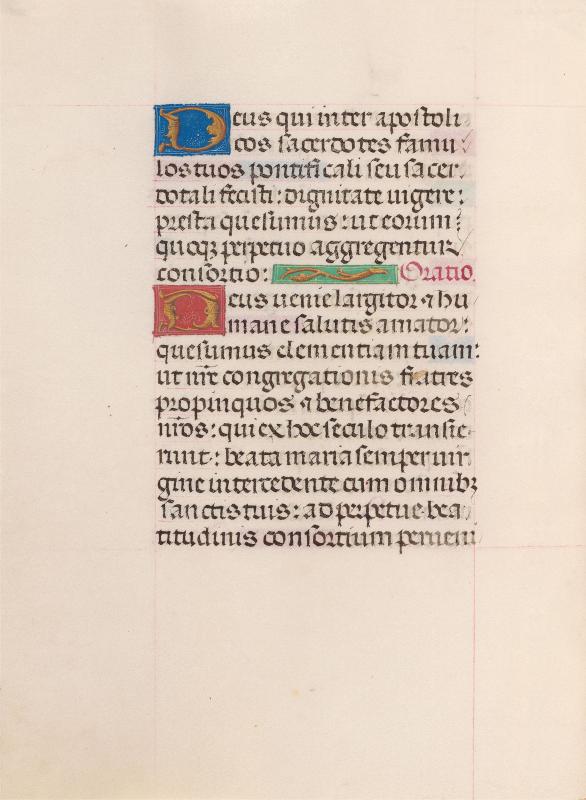 Deus qui inter apostoli
cos sacerdotes famu
los tuos pontificali seu sacer
dotali fecisti: dignitate uigere:
presta quesumus: ut eorum
quoqꝫ perpetuo aggregentur
consortio: Oratio.
Deus uenie largitor ⁊ hu
mane salutis amator:
quesumus clementiam tuam:
ut nr̃e congregationis fratres
propinquos ⁊ benefactores
nr̃os: qui ex hoc seculo transie
runt: beata maria semper uir
gine intercedente cum omnibꝫ
sanctis tuis: ad perpetue bea
titudinis consortium perueni